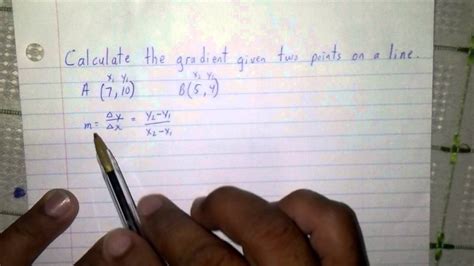 Calculate the gradient given two points on a line.
x₁ y₁ x₂ y₂
A (7,10) B(5,4)
m = Δy/Δx = y₂-y₁/x₂-x₁